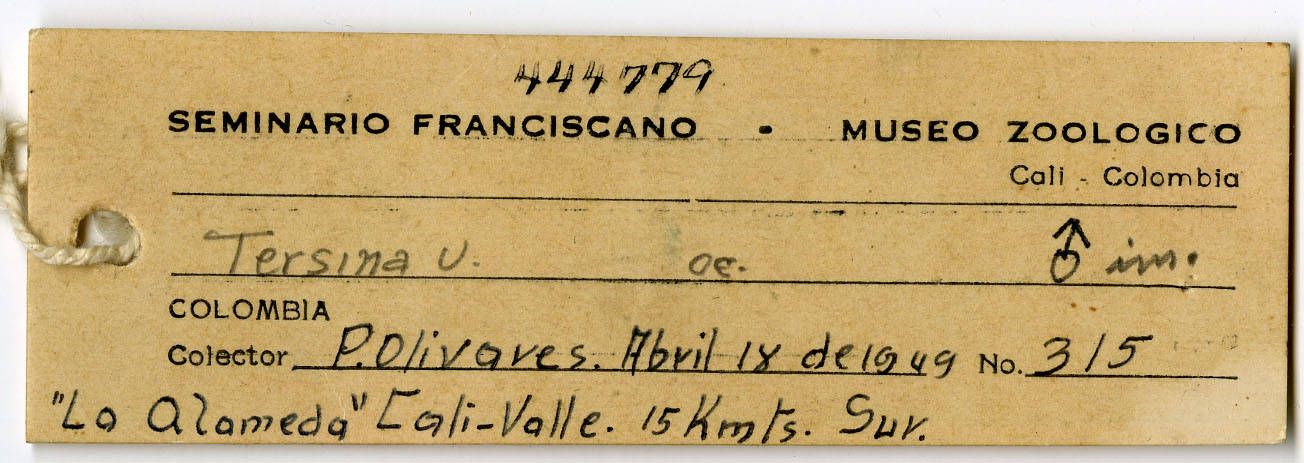 444779
SEMINARIO FRANCISCANO • MUSEO ZOOLOGICO
Cali - Colombia
Tersina v. oc. ♂ im.
COLOMBIA
Colector P. Olivares. Abril 18 de 1949 No. 315
"La Alameda" Cali-Valle. 15 Kmts. Sur.